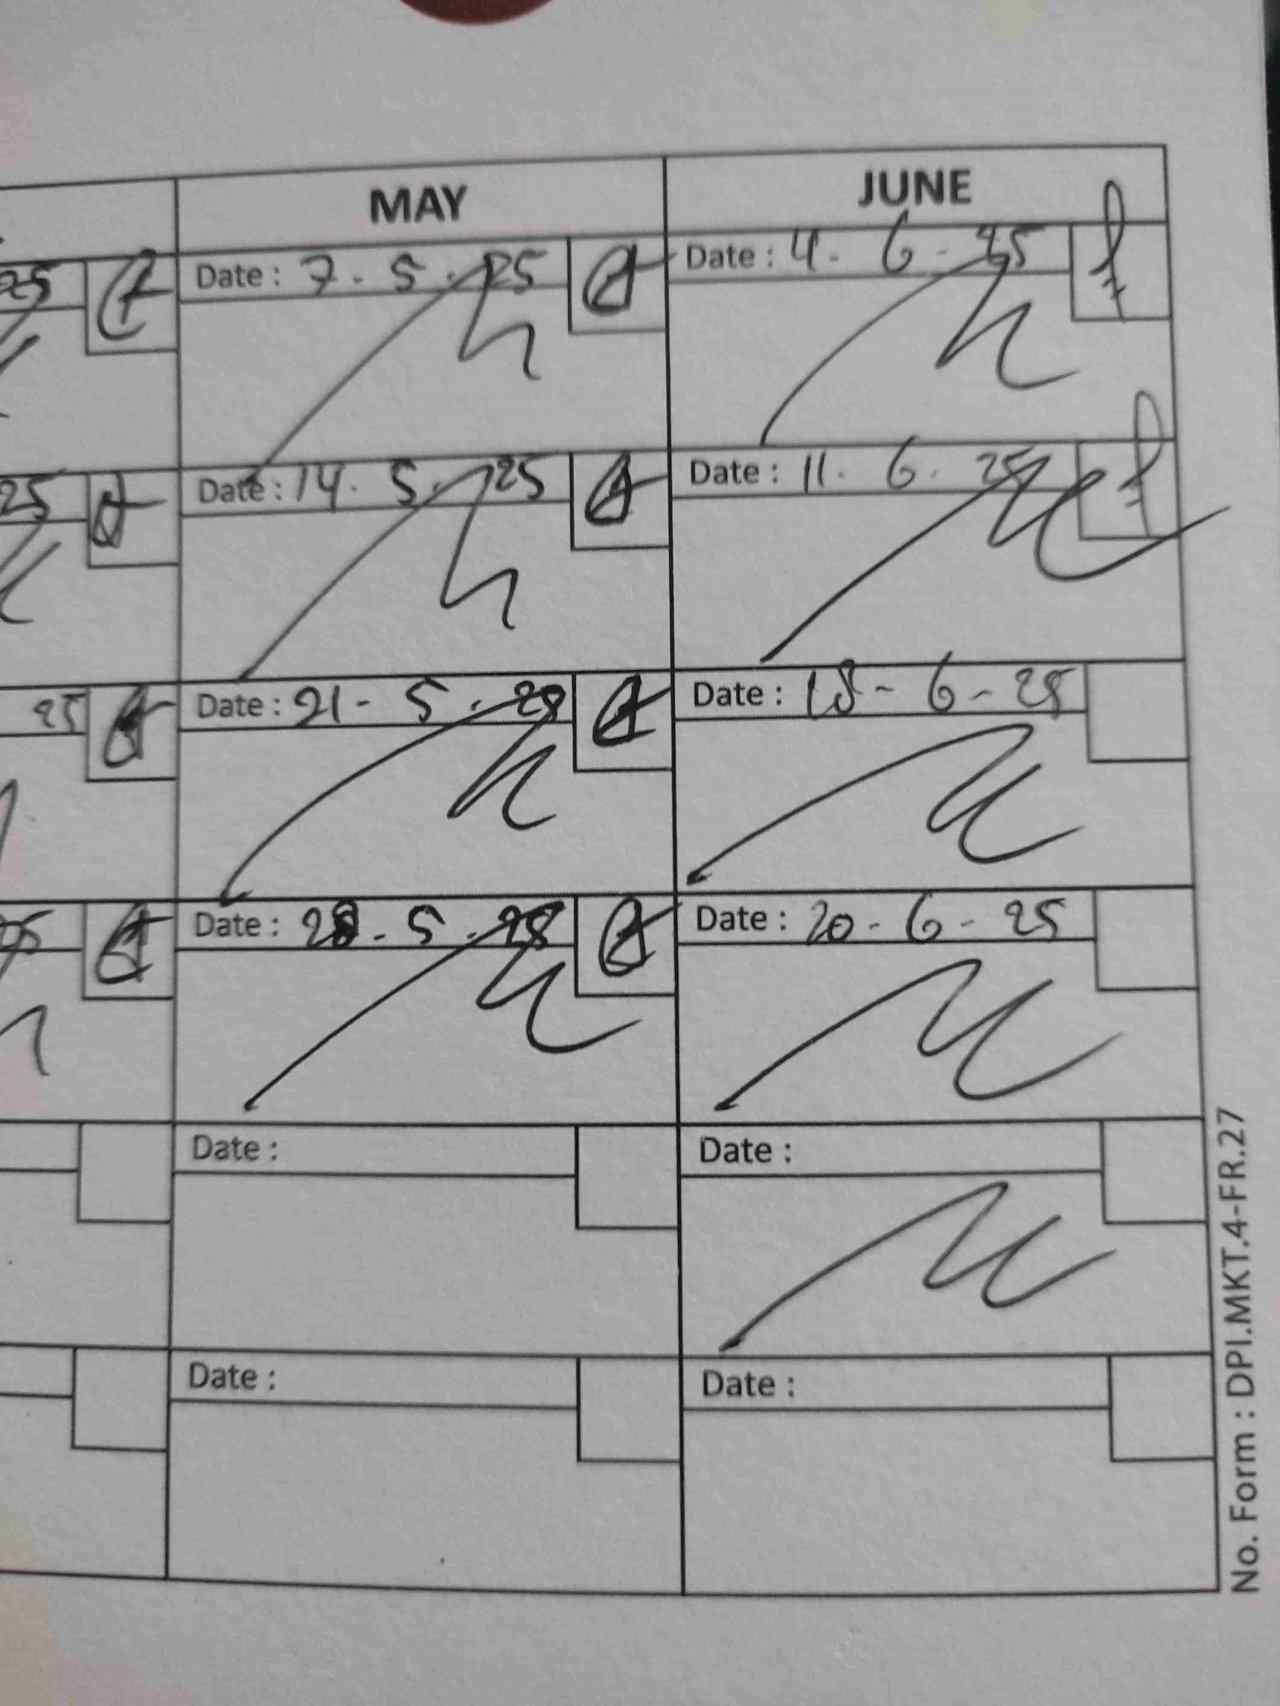 MAY JUNE
25 Date : 7 - 5 - 25 Date : 4 - 6 - 25
25 Date : 14 - 5 - 25 Date : 11 - 6 - 25
25 Date : 21 - 5 - Date : 18 - 6 - 25
Date : 28 - 5 - Date : 20 - 6 - 25
Date : Date :
Date : Date :
No. Form : DPI.MKT.4-FR.27